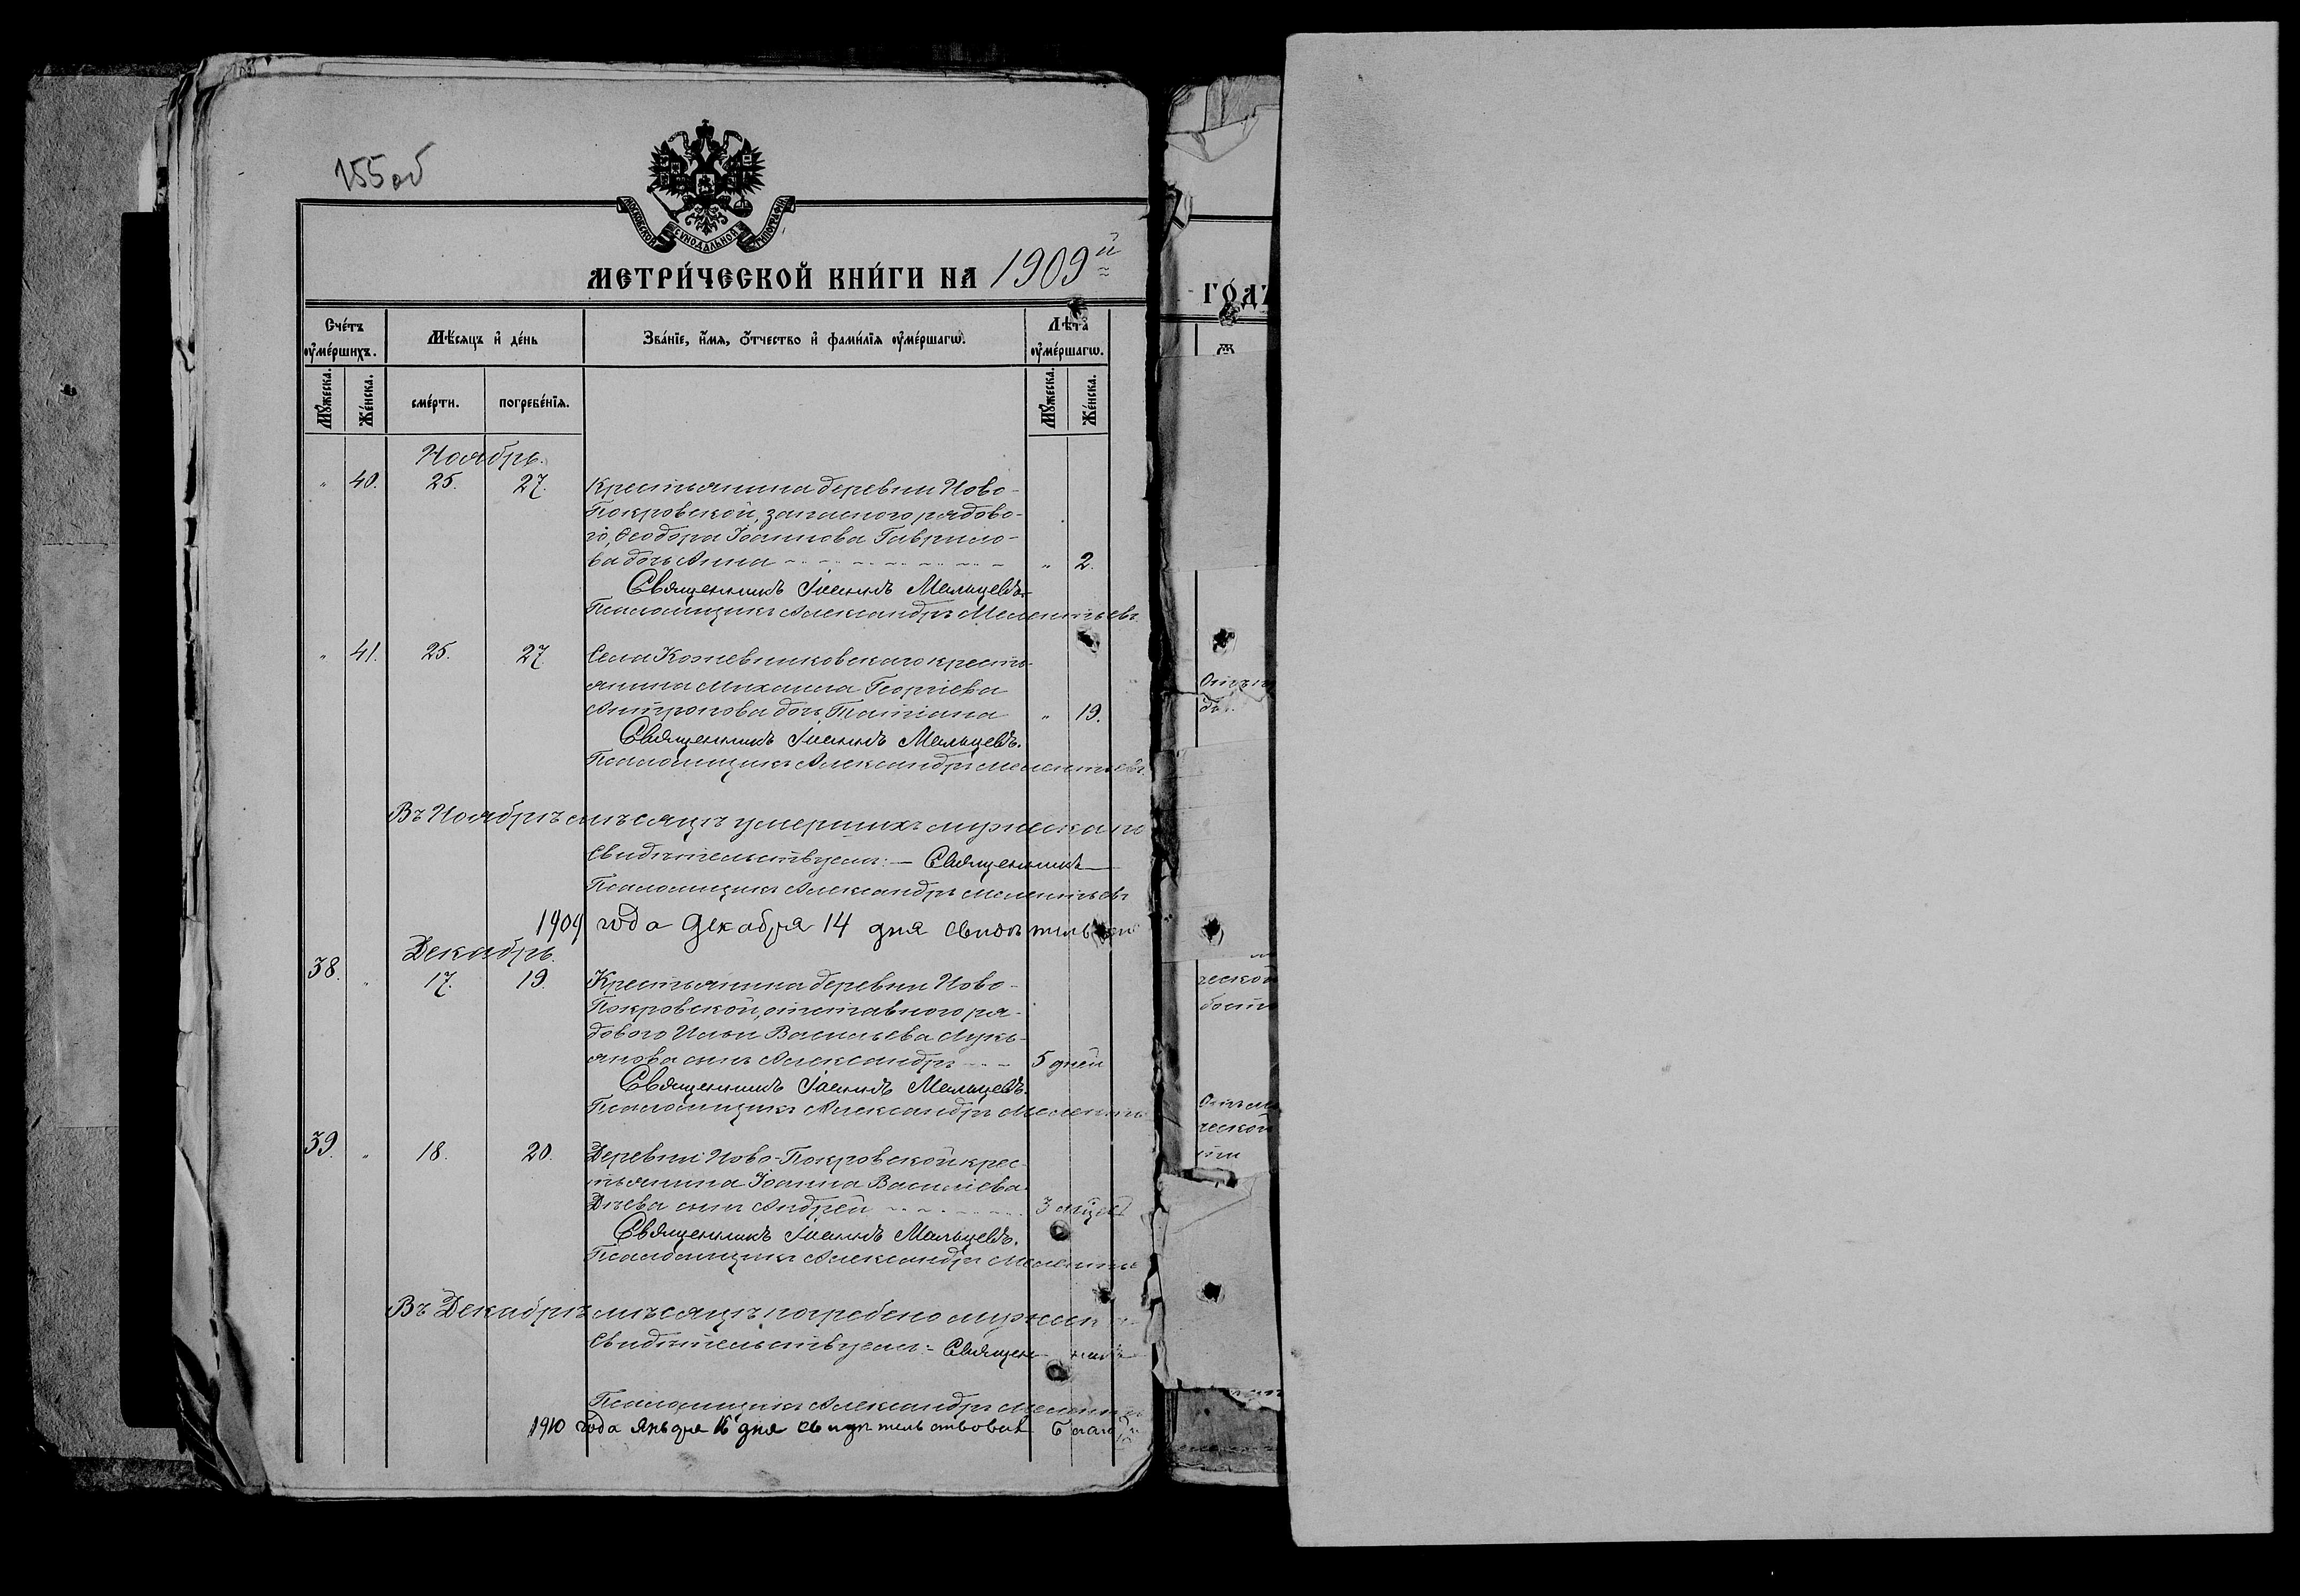 155об
МОСКОВСКОЙ СѴНОДАЛЬНОЙ ТИПОГРАФІИ
МЕТРИ́ЧЕСКОЙ КНИ́ГИ НА 1909й
ГО́ДЪ
Сче́тъ оу҆ме́ршихъ.
Мѣ́сяцъ и҆ де́нь
Зва́нїе, и҆́мѧ, ѻ҆́тчество и҆ фами́лїѧ оу҆ме́ршагѡ.
Лѣ́та оу҆ме́ршагѡ.
Мꙋ́жеска.
Же́нска.
сме́рти.
погребе́нїѧ.
Мꙋ́жеска.
Же́нска.
Ноябрь.
" 40. 25. 27. Крестьянина деревни Ново-
Покровской, запасного рядово-
го, Ѳеодора Іоаннова Гаврило-
ва дочь Анна " 2.
Священникъ Іоаннъ Мальцевъ.
Псаломщикъ Александръ Мелентьевъ
" 41. 25. 27. Села Кожевниковскаго кресть-
янина Михаила Георгіева
Антропова дочь Татіана " 19.
Священникъ Іоаннъ Мальцевъ.
Псаломщикъ Александръ Мелентьевъ
Въ Ноябрѣ мѣсяцѣ умершихъ мужеска по
Свидѣтельствуемъ: — Священникъ —
Псаломщикъ Александръ Мелентьевъ
1909 года Декабря 14 дня
Декабрь.
38. " 17. 19. Крестьянина деревни Ново-
Покровской, отставного ря-
дового Ильи Васильева Лукь-
янова сынъ Александръ 5 дней
Священникъ Іоаннъ Мальцевъ.
Псаломщикъ Александръ Меленть
39. " 18. 20. Деревни Ново-Покровской крес-
тьянина Іоанна Василіева
Дѣева сынъ Андрей 3
Священникъ Іоаннъ Мальцевъ.
Псаломщикъ Александръ Меленть
Въ Декабрѣ мѣсяцѣ погребено мужеск
Свидѣтельствуемъ: - Священникъ
Псаломщикъ Александръ Меленть
1910 года Января 16 дня свидѣтельствовалъ Благ
ческой
ческой